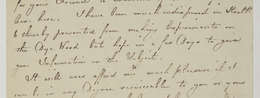 been here. I have been much indisposed in Health
& thereby prevented from making Experiments on
the Dye Wood but hope in a few days to give
you Information on the Subject.
It will ever afford me much pleasure if it
can be in my Power serviceable to you or your